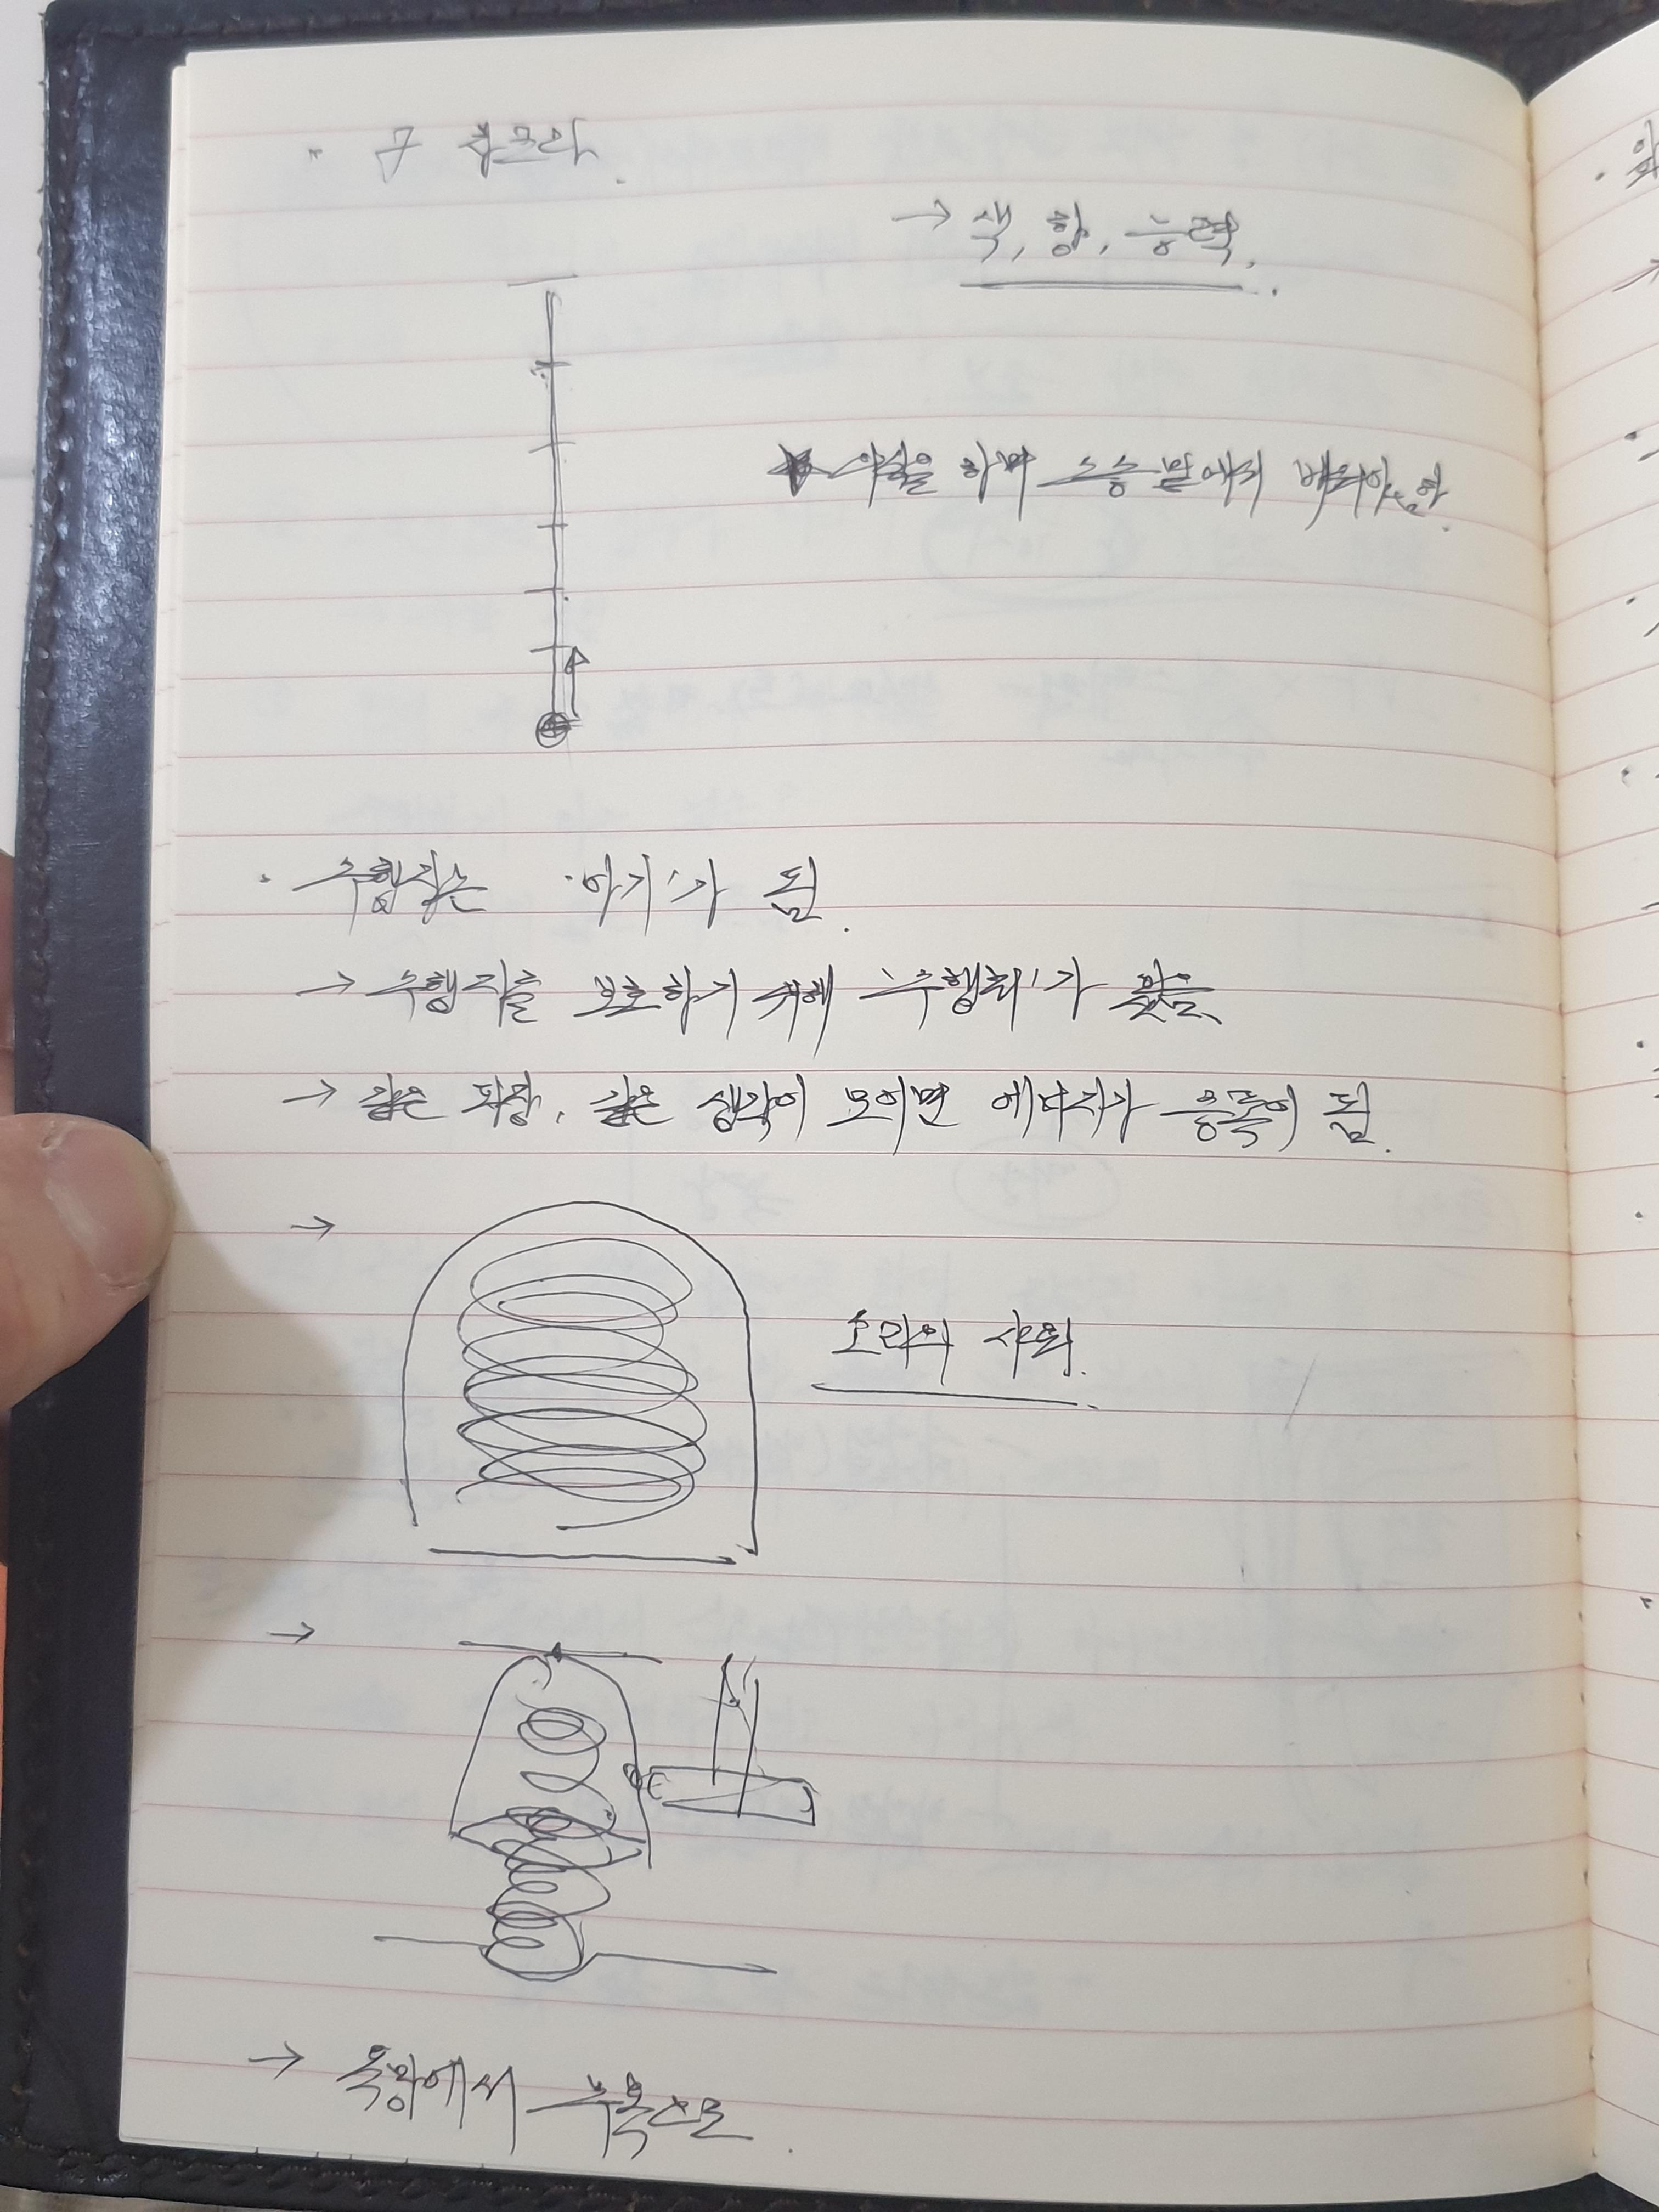 7 챠크라.
→ 색, 향, 능력.
하며 스승 밑에서 배워야 함.
· 수행자는 '아기'가 됨.
→ 수행자를 보호하기 위해 '수행회'가 왔음.
→ 같은 파장, 같은 생각이 모이면 에너지가 증폭이 됨.
→
오라의 샤워.
→
→ 욕망에서 축복으로.